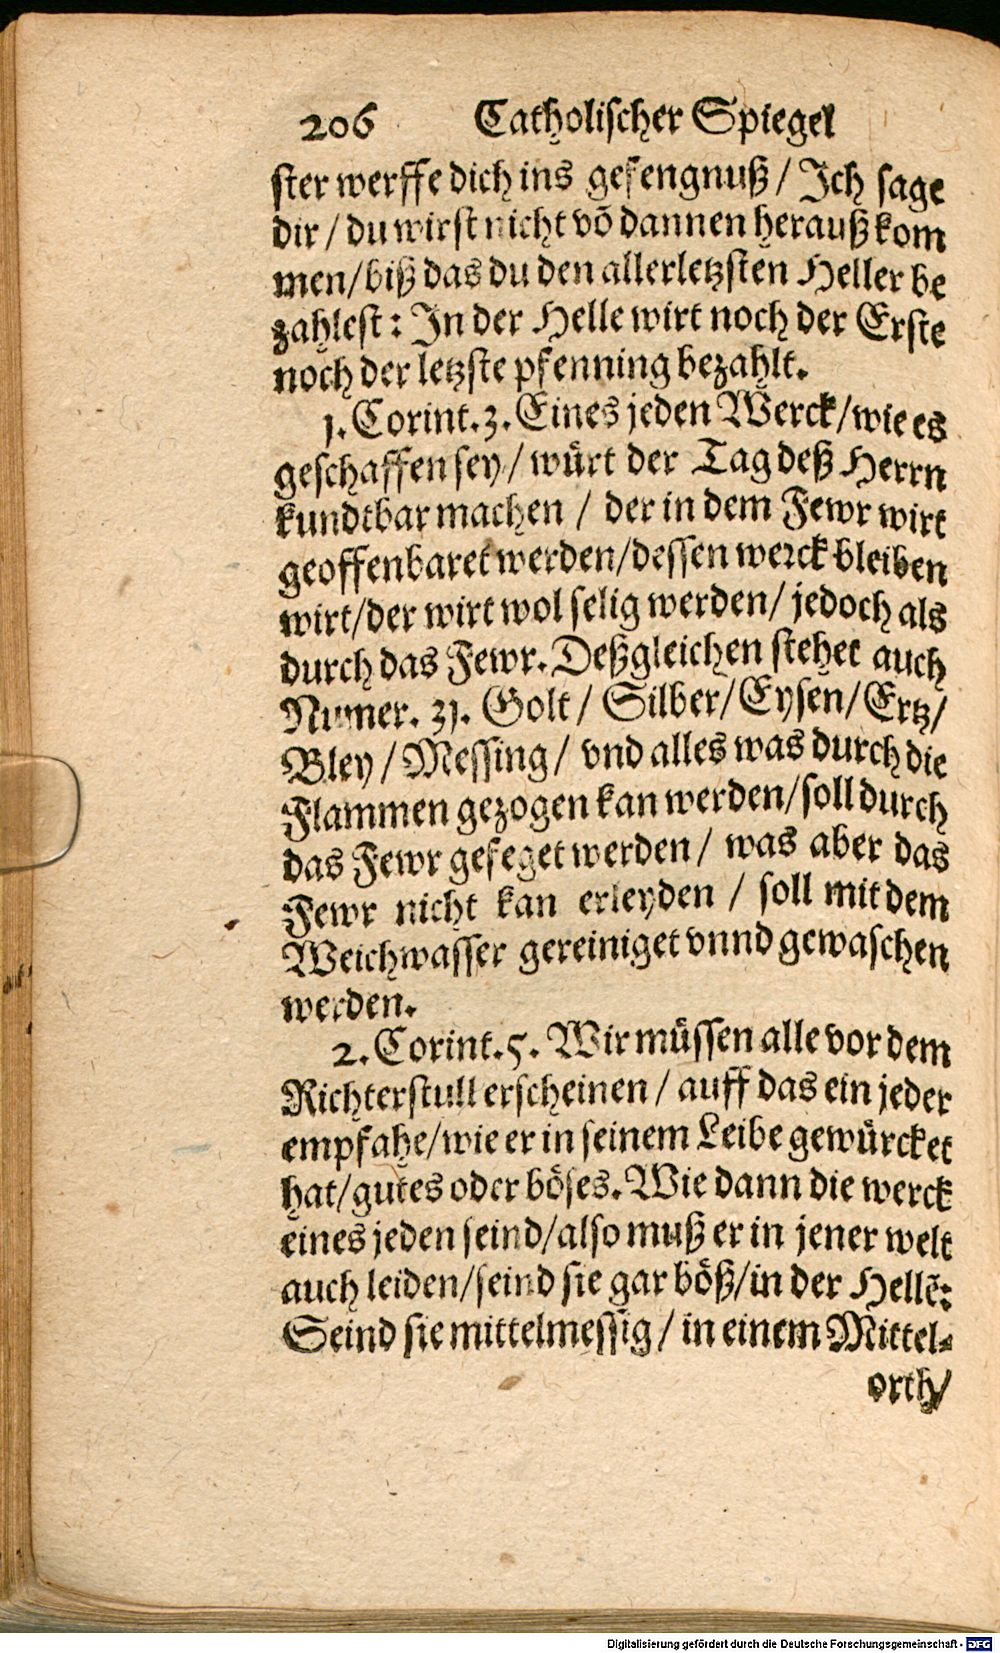 206 Catholischer Spiegel
ster werffe dich ins gefengnuß / Ich sage
dir / du wirst nicht võ dannen herauß kom
men / biß das du den allerletzsten Heller be
zahlest : In der Helle wirt noch der Erste
noch der letzste pfenning bezahlt.
1. Corint. 3. Eines jeden Werck / wie es
geschaffen sey / würt der Tag deß Herrn
kundtbar machen / der in dem Fewr wirt
geoffenbaret werden / dessen werck bleiben
wirt / der wirt wol selig werden / jedoch als
durch das Fewr. Deßgleichen stehet auch
Numer. 31. Golt / Silber / Eysen / Ertz /
Bley / Messing / vnd alles was durch die
Flammen gezogen kan werden / soll durch
das Fewr gefeget werden / was aber das
Fewr nicht kan erleyden / soll mit dem
Weichwasser gereiniget vnnd gewaschen
werden.
2. Corint. 5. Wir müssen alle vor dem
Richterstull erscheinen / auff das ein jeder
empfahe / wie er in seinem Leibe gewürcket
hat / gutes oder böses. Wie dann die werck
eines jeden seind / also muß er in jener welt
auch leiden / seind sie gar böß / in der Hellẽ:
Seind sie mittelmessig / in einem Mittel-
orth /
Digitalisierung gefördert durch die Deutsche Forschungsgemeinschaft - DFG